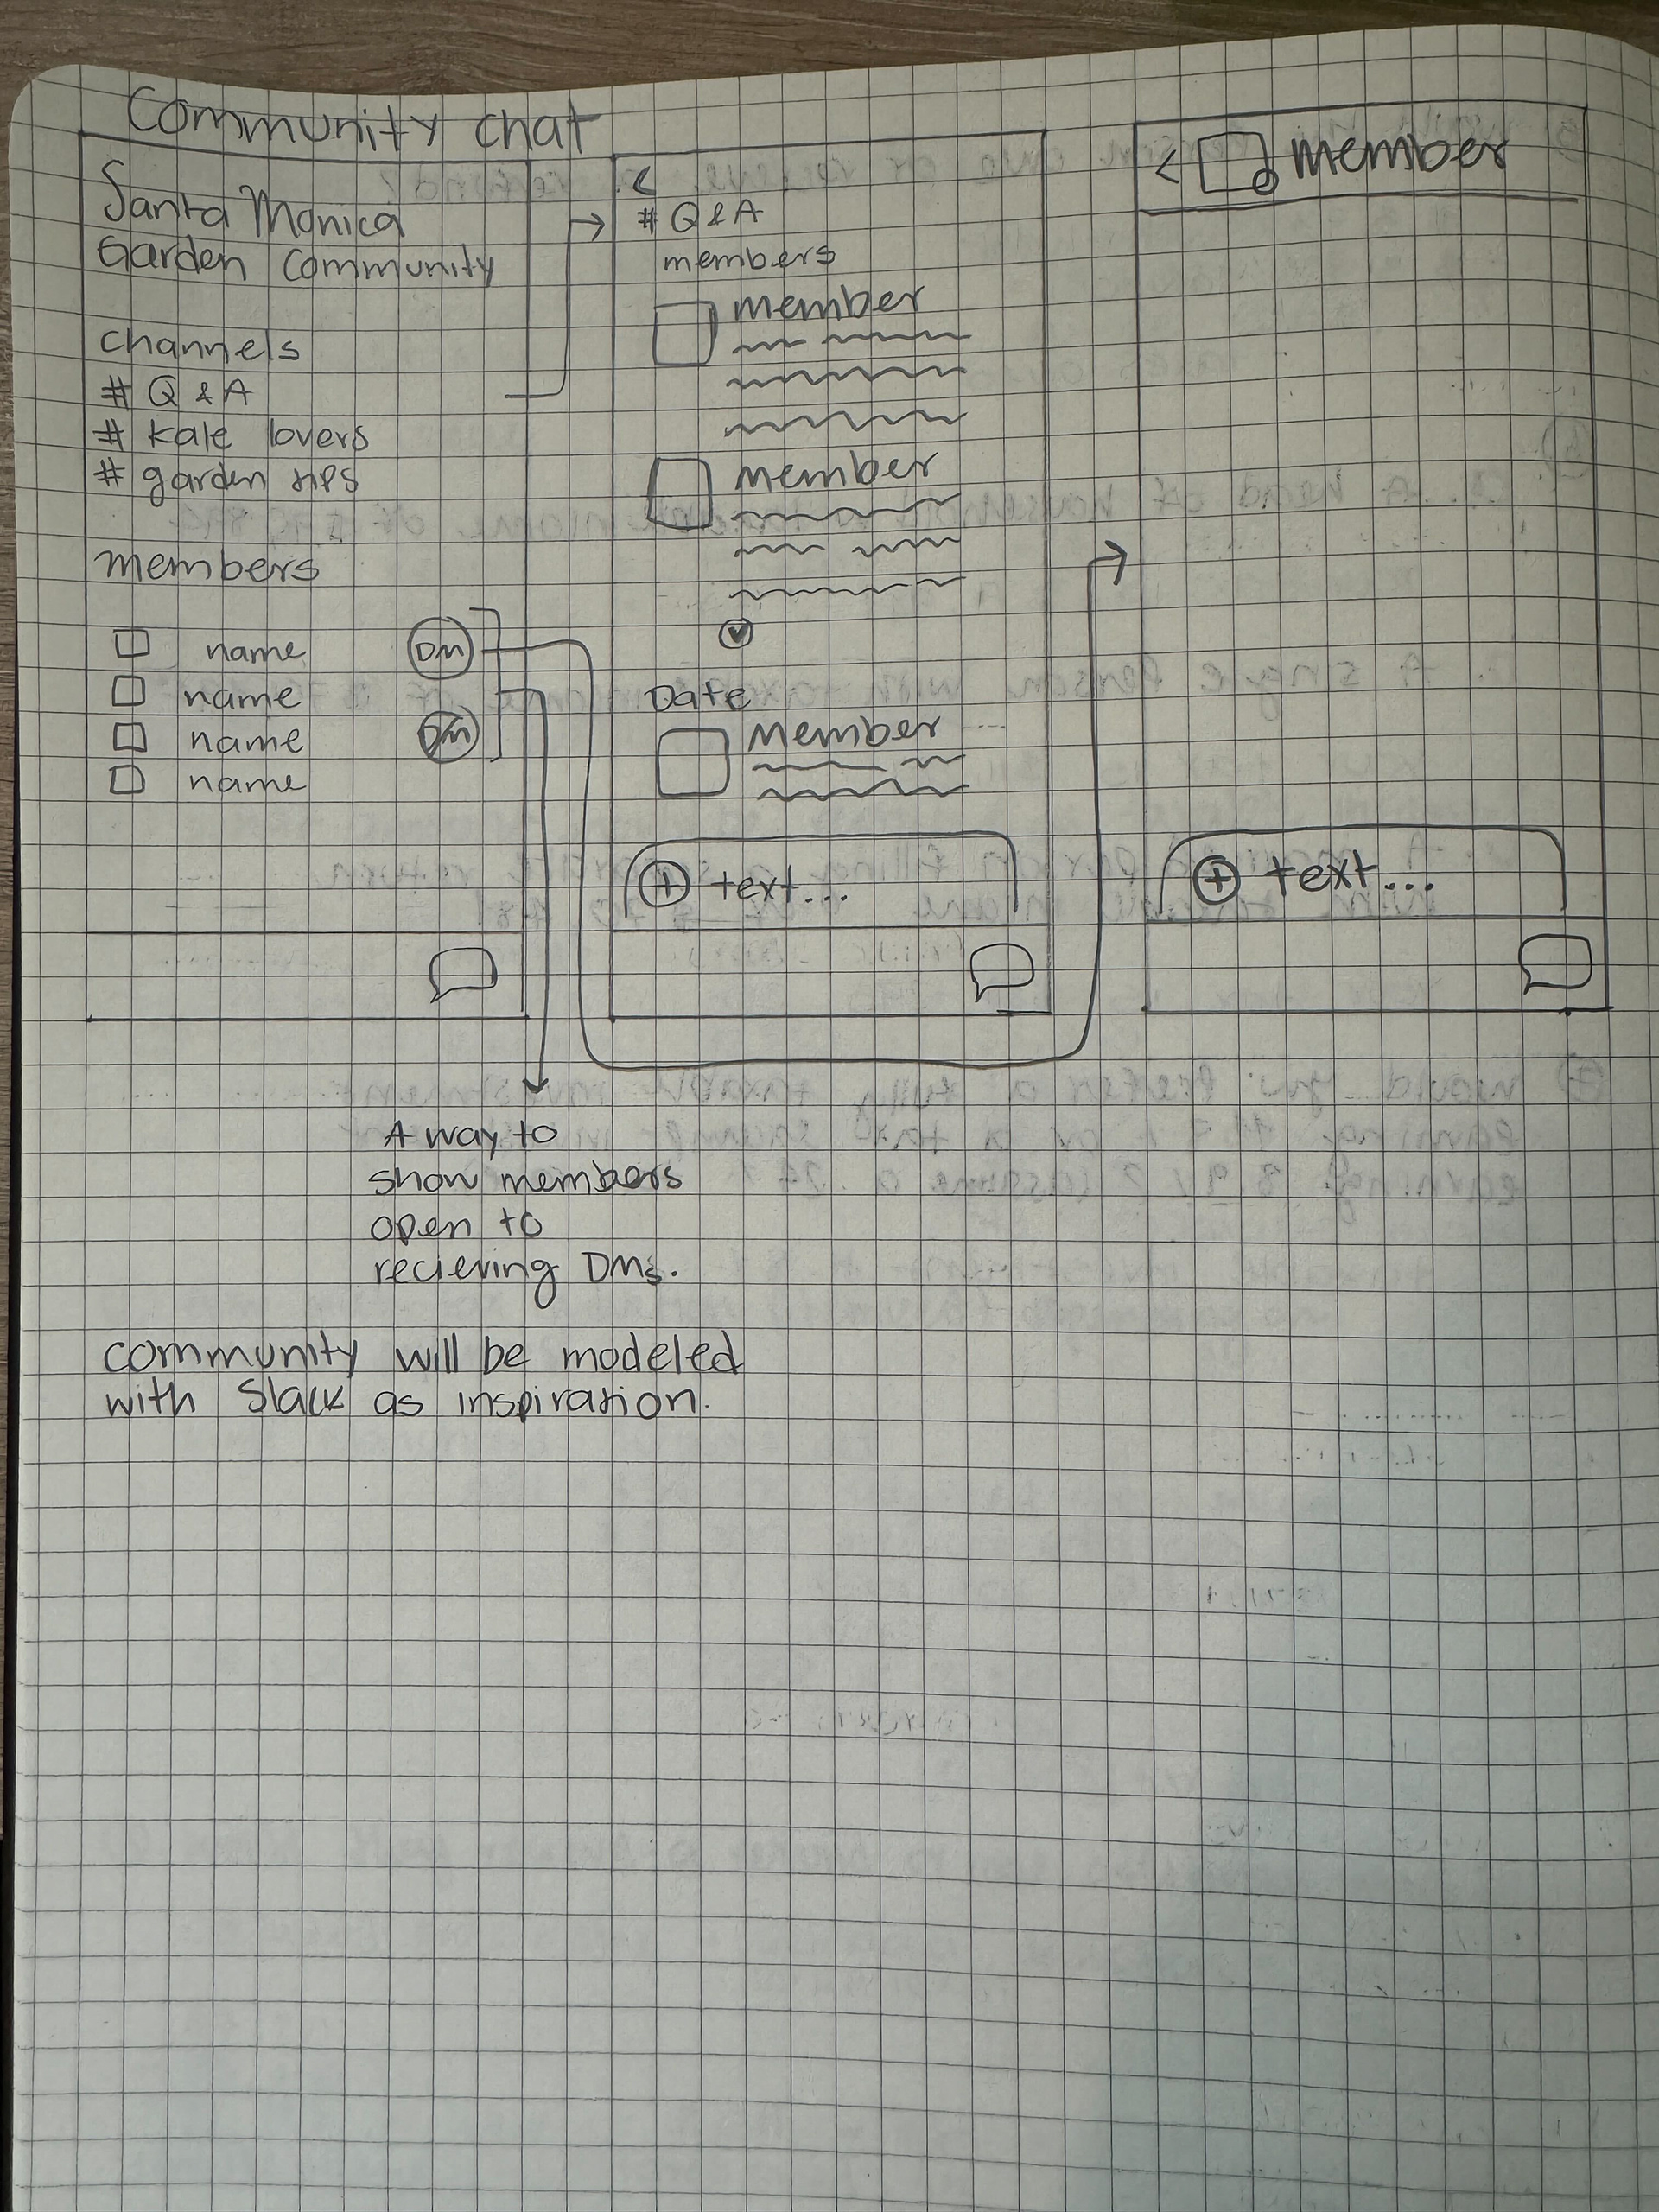 Community chat
Santa Monica
Garden Community
channels
# Q & A
# kale lovers
# garden tips
members
name DM
name
name DM
name
<
# Q & A
members
member
member
Date
member
+ text...
< member
+ text...
A way to
show members
open to
recieving DMs.
community will be modeled
with Slack as inspiration.